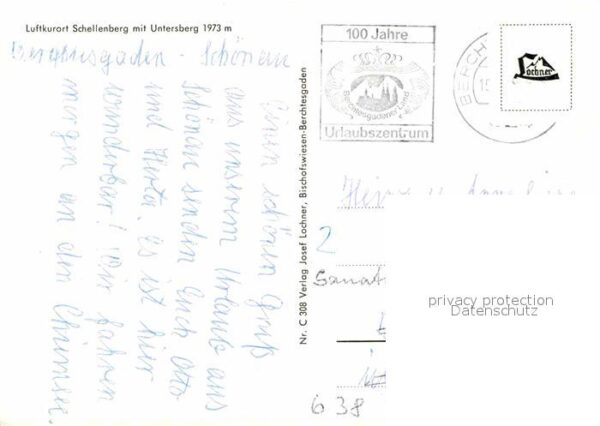 Luftkurort Schellenberg mit Untersberg 1973 m
Berchtesgaden - Schönau
Einen schönen Gruß
aus unserem Urlaub aus
Schönau senden Euch Otto
und Herta, es ist hier
wunderbar! Wir fahren
morgen an den Chiemsee.
Nr. C 308 Verlag Josef Lochner, Bischofswiesen-Berchtesgaden
100 Jahre
Berchtesgadener Land
e.V.
Urlaubszentrum
BERCH
Lochner
2
Sanat
privacy protection
Datenschutz
638